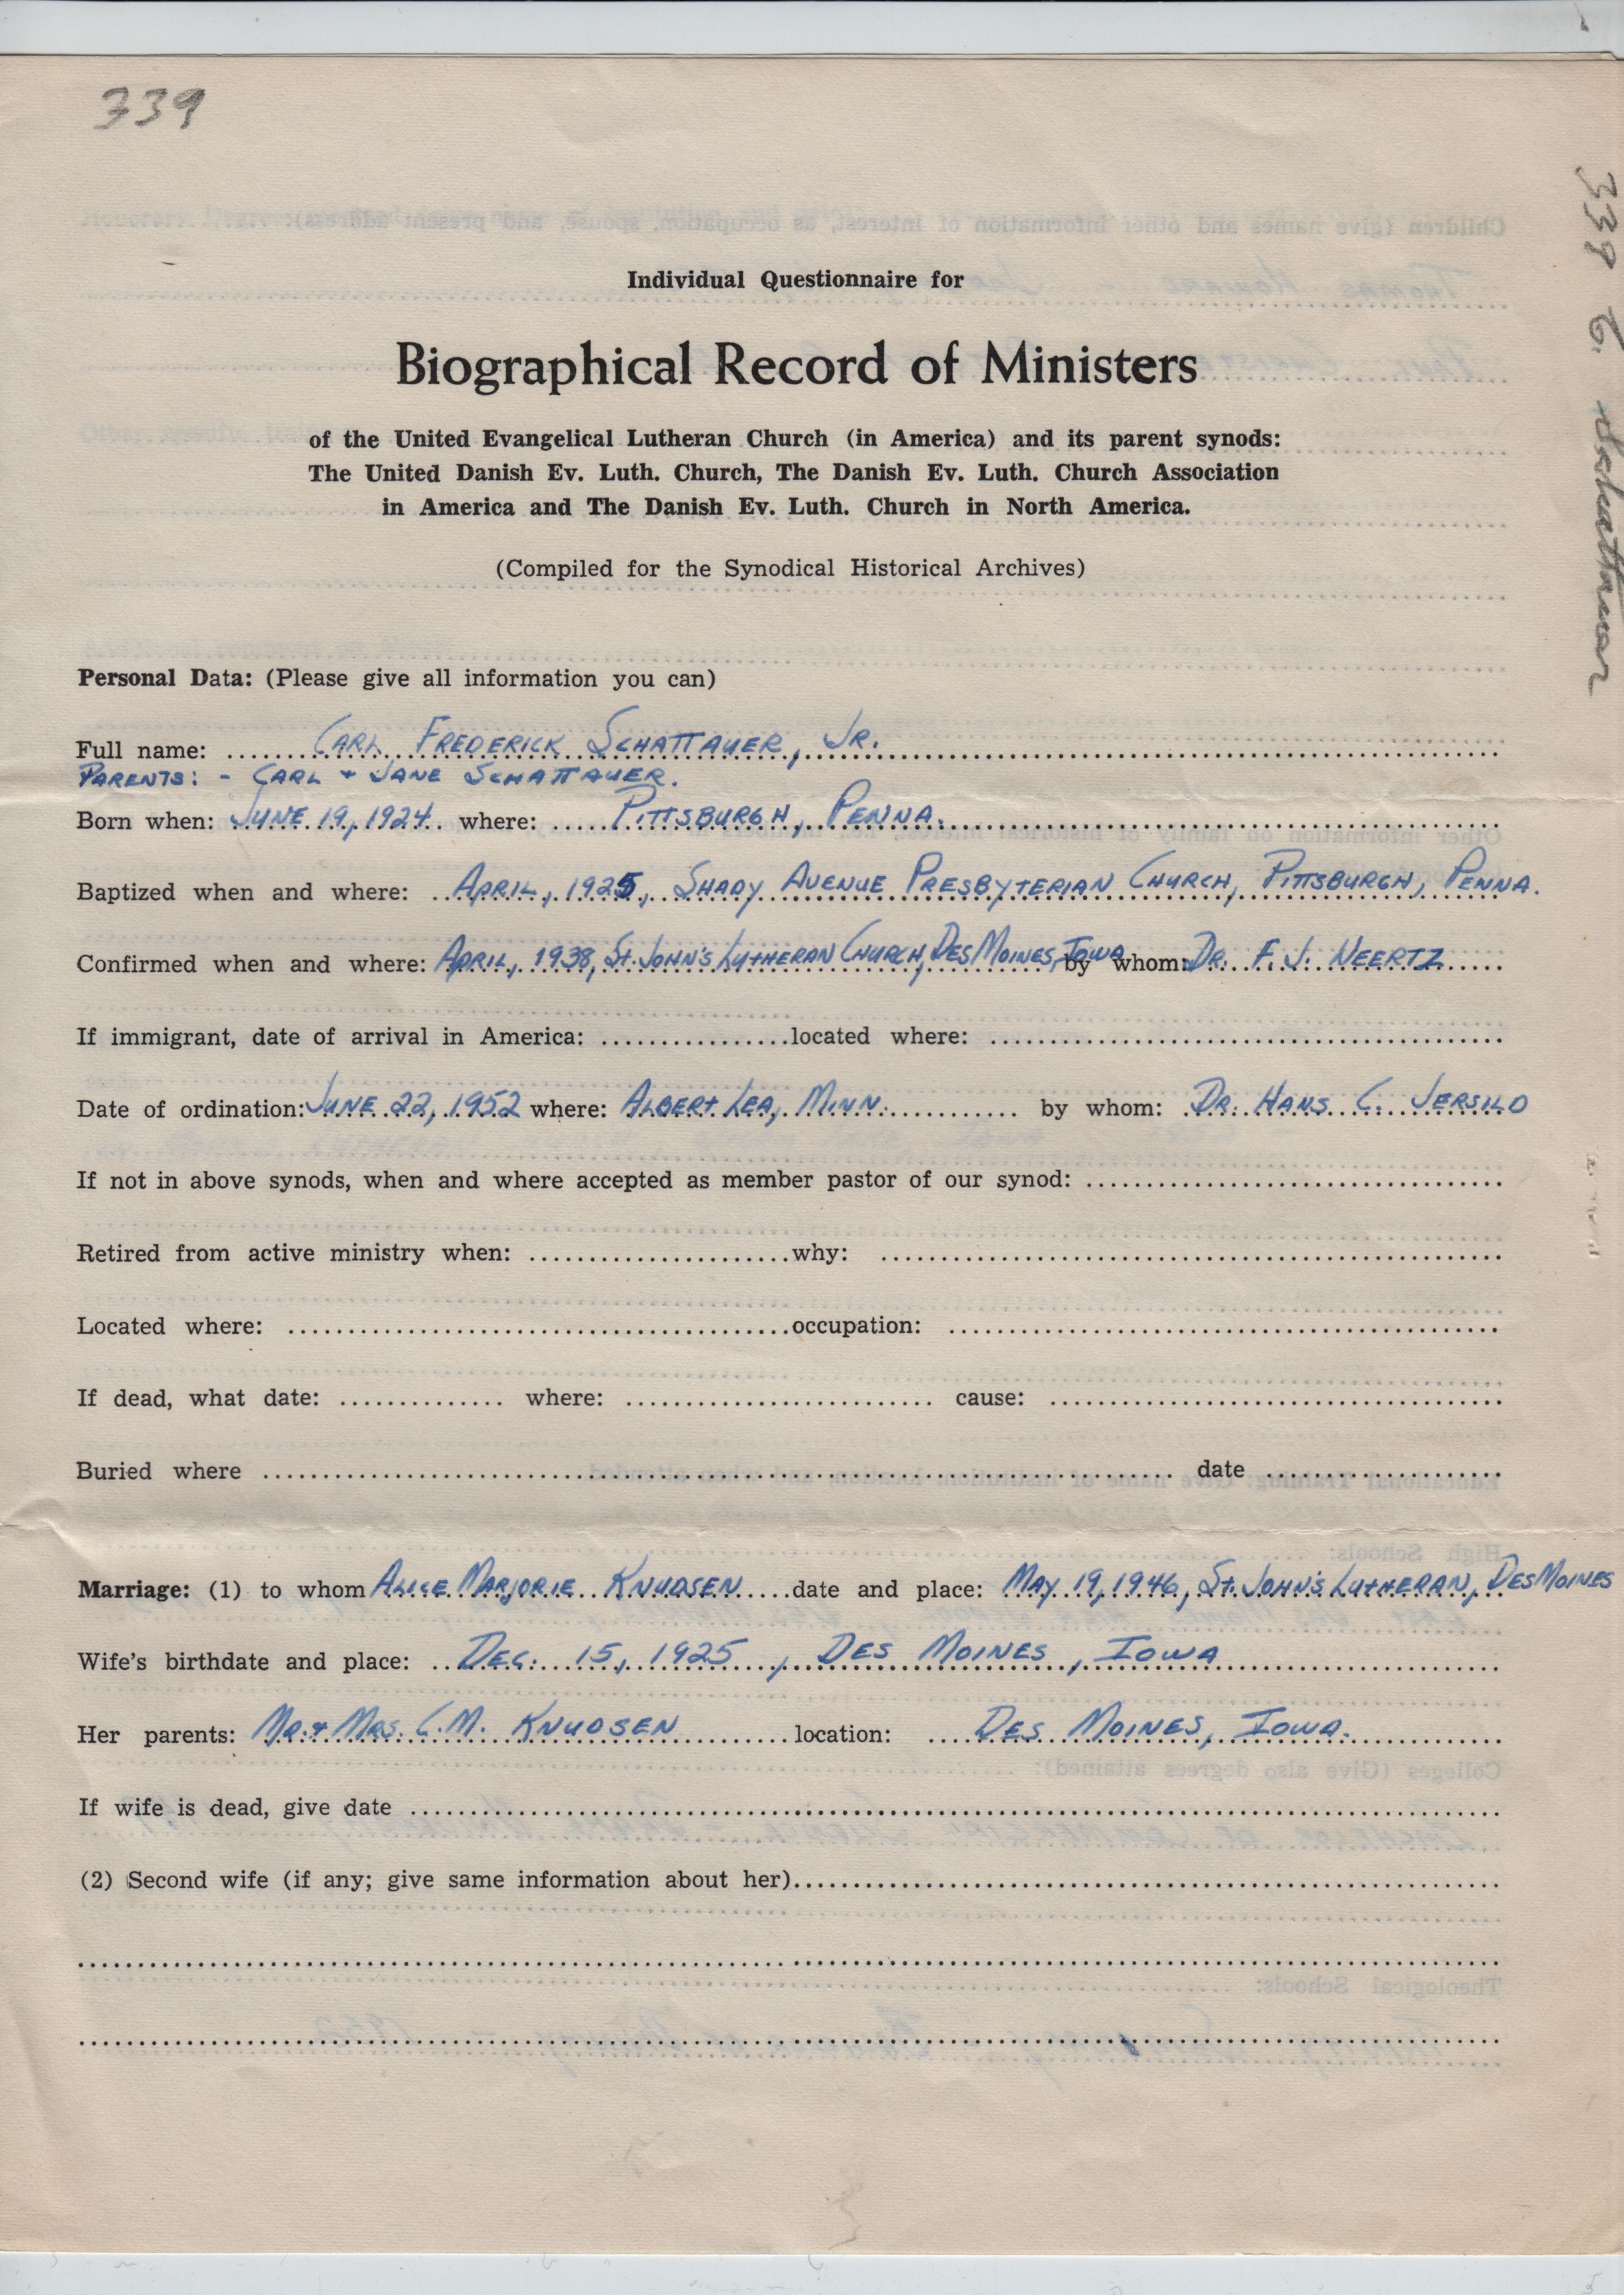 339
339 C. Schattauer
Individual Questionnaire for
Biographical Record of Ministers
of the United Evangelical Lutheran Church (in America) and its parent synods:
The United Danish Ev. Luth. Church, The Danish Ev. Luth. Church Association
in America and The Danish Ev. Luth. Church in North America.
(Compiled for the Synodical Historical Archives)
Personal Data: (Please give all information you can)
Full name: CARL FREDERICK SCHATTAUER, JR.
PARENTS: - CARL + JANE SCHATTAUER.
Born when: JUNE 19, 1924 where: PITTSBURGH, PENNA.
Baptized when and where: APRIL, 1925, SHADY AVENUE PRESBYTERIAN CHURCH, PITTSBURGH, PENNA.
Confirmed when and where: APRIL, 1938, ST. JOHN'S LUTHERAN CHURCH, DES MOINES, IOWA by whom: DR. F. J. WEERTZ
If immigrant, date of arrival in America: located where:
Date of ordination: JUNE 22, 1952 where: ALBERT LEA, MINN. by whom: DR. HANS C. JERSILD
If not in above synods, when and where accepted as member pastor of our synod:
Retired from active ministry when: why:
Located where: occupation:
If dead, what date: where: cause:
Buried where date
Marriage: (1) to whom ALICE MARJORIE KNUDSEN date and place: MAY 19, 1946, ST. JOHN'S LUTHERAN, DES MOINES
Wife's birthdate and place: DEC. 15, 1925, DES MOINES, IOWA
Her parents: MR. + MRS. C. M. KNUDSEN location: DES MOINES, IOWA.
If wife is dead, give date
(2) Second wife (if any; give same information about her)